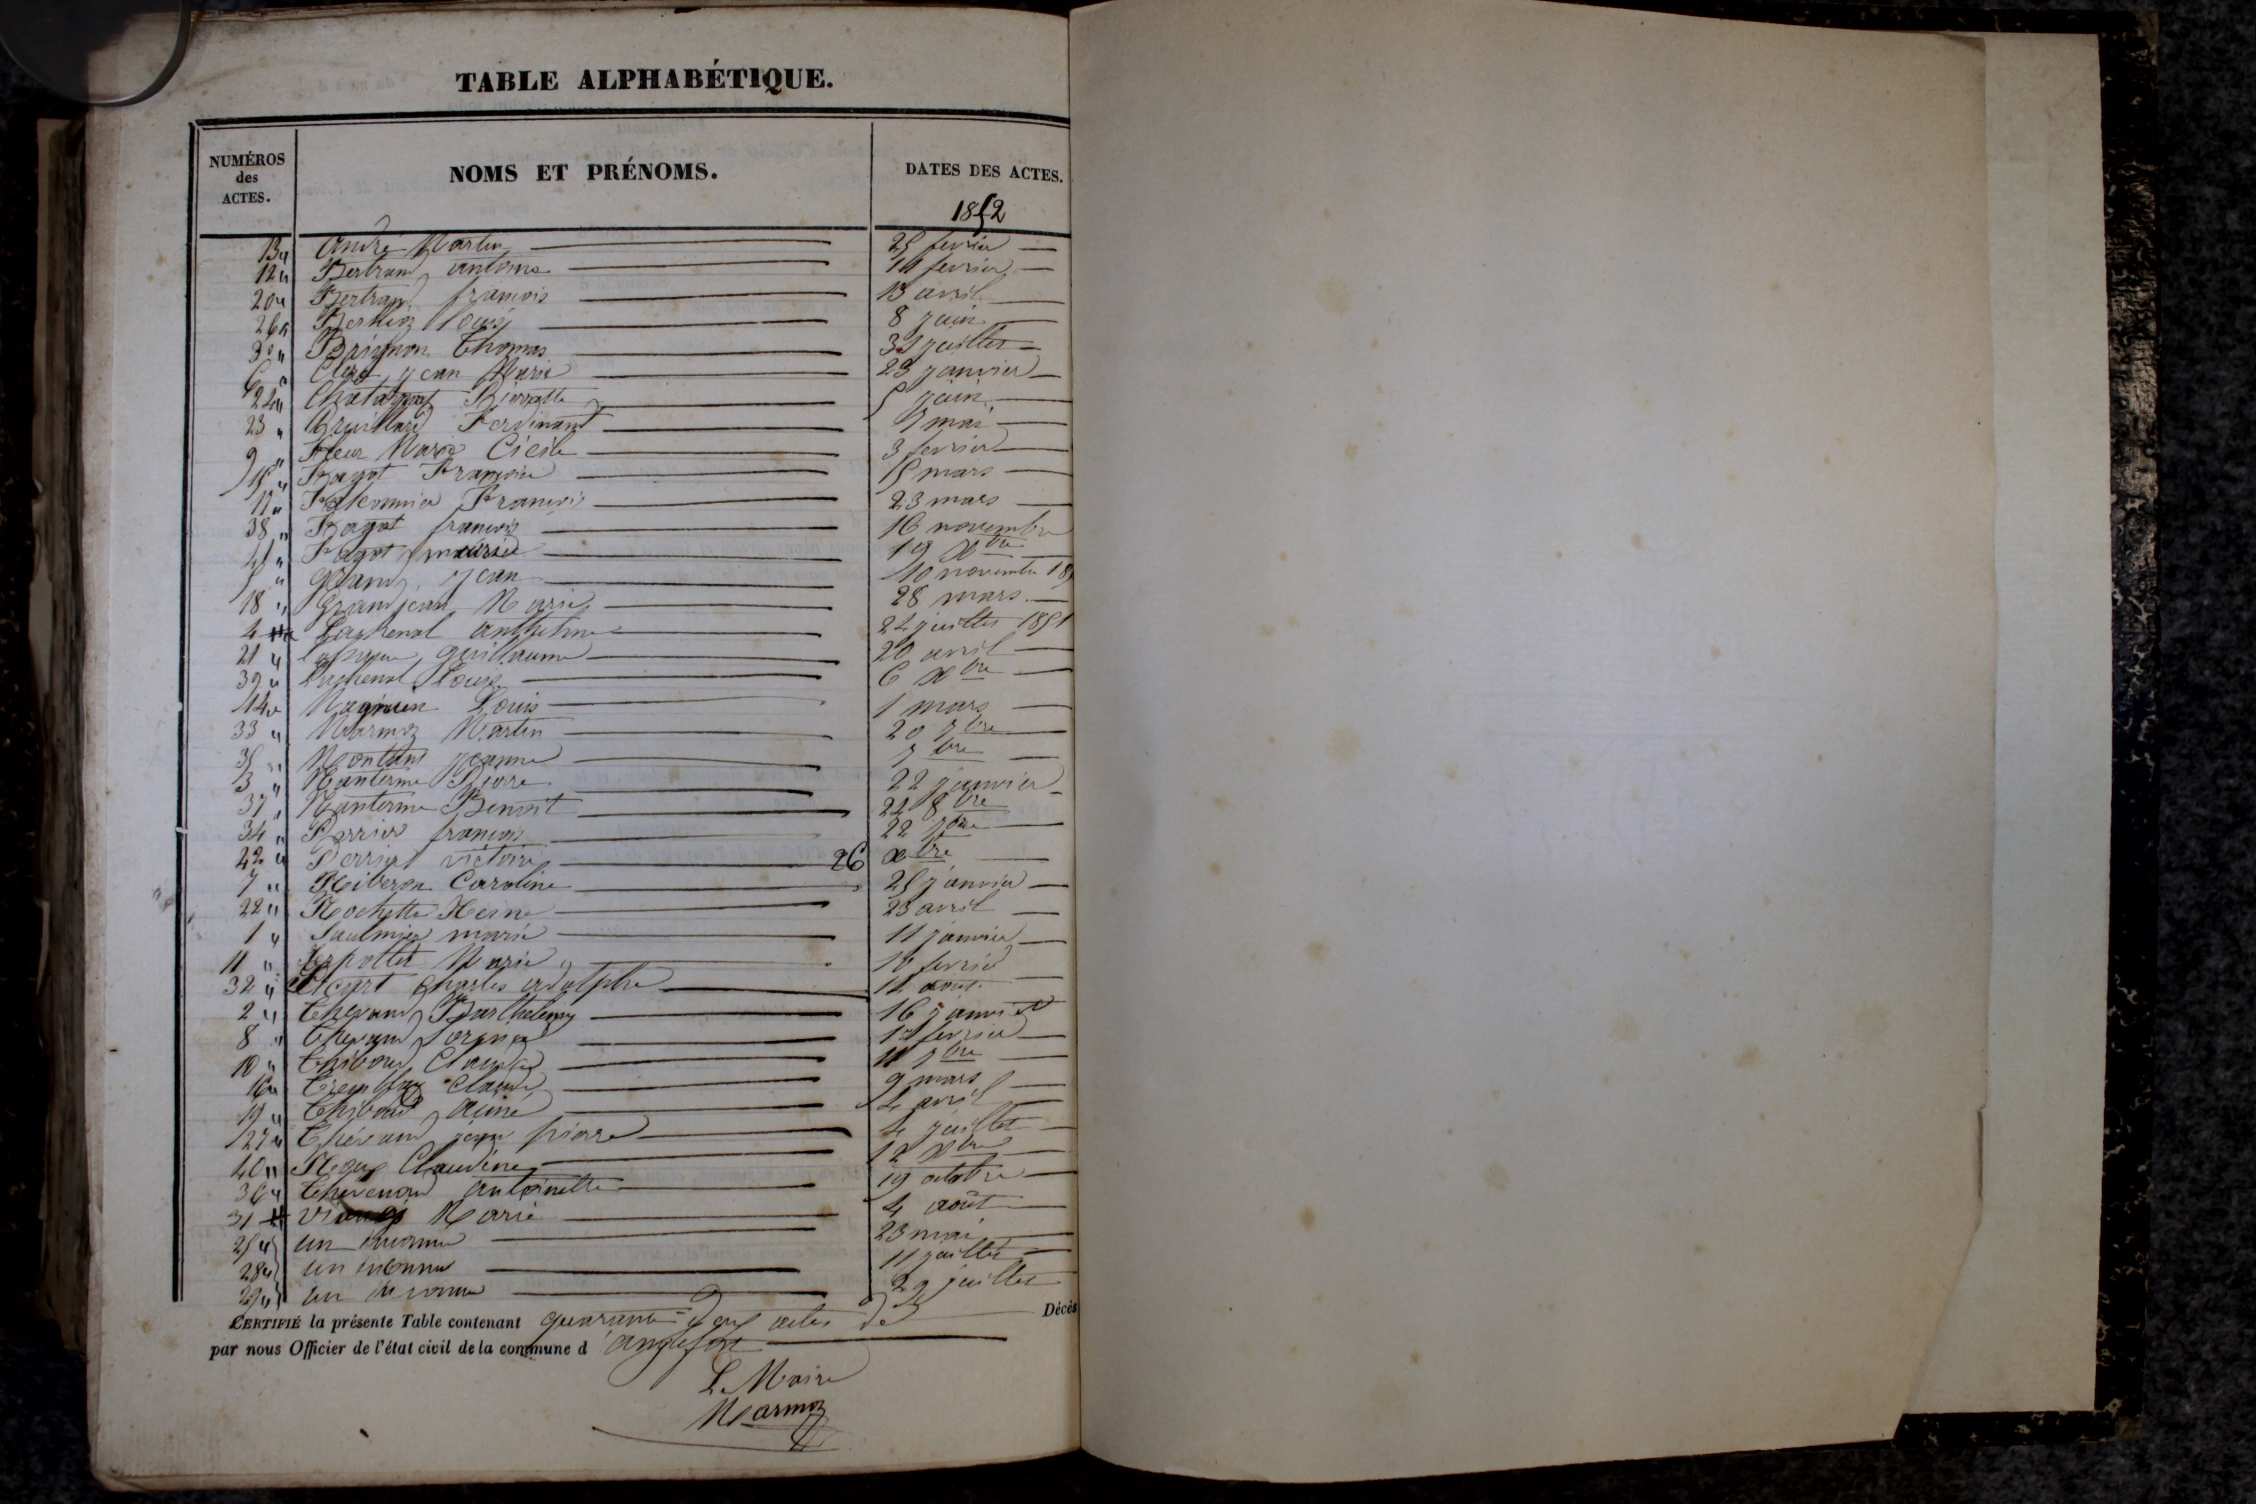 TABLE ALPHABÉTIQUE.
NUMÉROS des ACTES.
NOMS ET PRÉNOMS.
DATES DES ACTES.
1852
13 " André Martin 25 fevrier
12 " Bertrand antoine fevrier
20 " Bertrand françois 13 avril
26 " louis 8 juin
30 " Brignon Thomas 31 juillet
6 " Clerc jean Marie 23 janvier
24 " Pierrette 5 juin
23 " Ferdinand 7 mai
9 " Fleur Marie Cécile 3 fevrier
15 " Fagot Françoise 15 mars
17 " Falconnier François 23 mars
38 " Fagot françois 16 novembre
41 " Fagot 19 Xbre
5 " jean 10 novembre 18
18 " Grandjean Marie 28 mars
4 " Lachenal anthelme 24 juillet 1851
21 " guillaume 20 avril
39 " Lachenal Louise 6 Xbre
14 " Magnien Louis 1 mars
33 " Marmoz Martin 20 7bre
35 " jeanne 7bre
3 " Nanterme Pierre 22 janvier
37 " Nanterme Benoit 24 8bre
34 " Perrier françois 22 7bre
42 " Perrier victoire 26 Xbre
7 " Caroline 25 janvier
22 " Rochette Reine 23 avril
1 " Saulnier marie 11 janvier
11 " Marie 10 fevrier
32 " Charles adolphe 12 aout
2 " Thevand Barthelemy 16 janvier
8 " Thevand fevrier
10 " Thiboud Claude
16 " Tremblay Claude 9 mars
19 " Thiboud Aimé 4 avril
27 " Thévand jean pierre 4 juillet
40 " Claudine 12 Xbre
36 " Thevenod antoinette 19 octobre
31 " Marie 4 août
25 " un inconnu 23 mai
28 " un inconnu 11 juillet
29 " un inconnu 29 juillet
CERTIFIÉ la présente Table contenant quarante-deux actes de Décès
par nous Officier de l'état civil de la commune d'anglefort
Le Maire
Marmoz